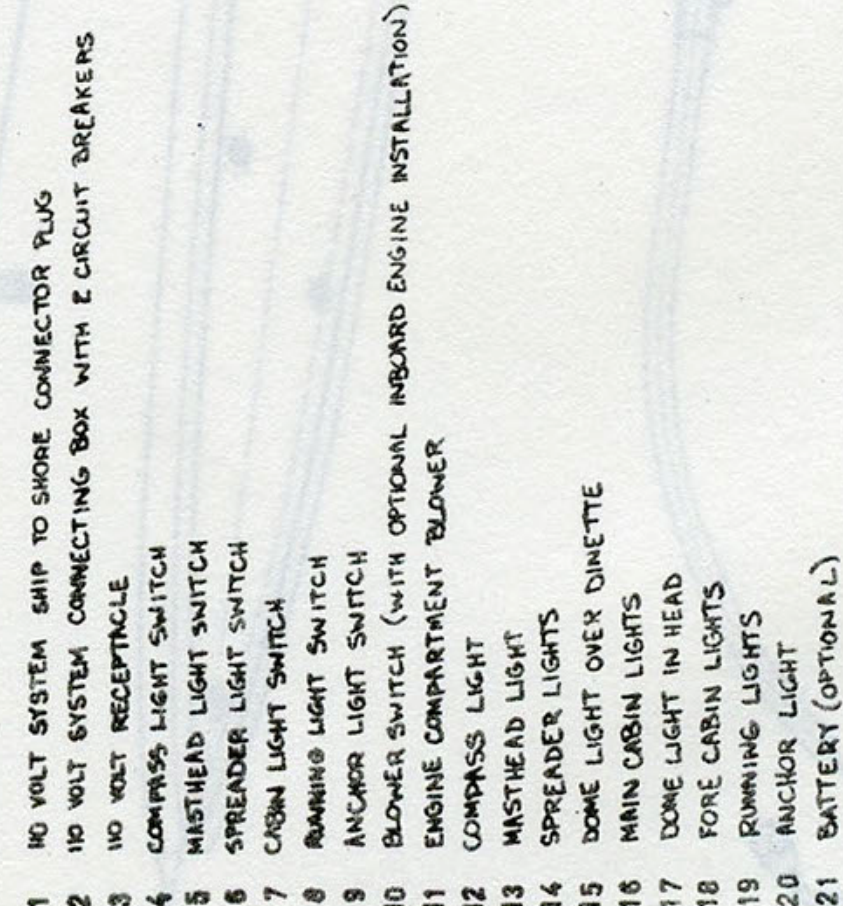 1 110 VOLT SYSTEM SHIP TO SHORE CONNECTOR PLUG
2 110 VOLT SYSTEM CONNECTING BOX WITH 2 CIRCUIT BREAKERS
3 110 VOLT RECEPTACLE
4 COMPASS LIGHT SWITCH
5 MASTHEAD LIGHT SWITCH
6 SPREADER LIGHT SWITCH
7 CABIN LIGHT SWITCH
8 RUNNING LIGHT SWITCH
9 ANCHOR LIGHT SWITCH
10 BLOWER SWITCH (WITH OPTIONAL INBOARD ENGINE INSTALLATION)
11 ENGINE COMPARTMENT BLOWER
12 COMPASS LIGHT
13 MASTHEAD LIGHT
14 SPREADER LIGHTS
15 DOME LIGHT OVER DINETTE
16 MAIN CABIN LIGHTS
17 DOME LIGHT IN HEAD
18 FORE CABIN LIGHTS
19 RUNNING LIGHTS
20 ANCHOR LIGHT
21 BATTERY (OPTIONAL)